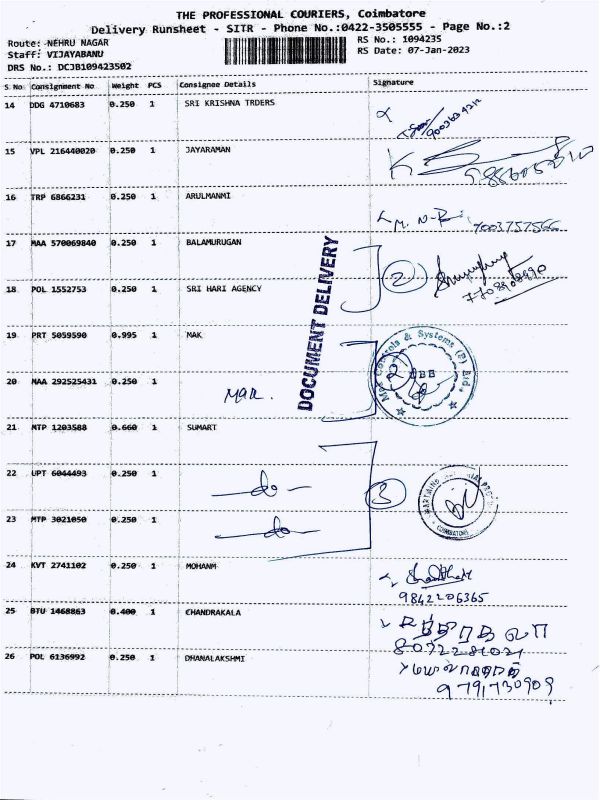 THE PROFESSIONAL COURIERS, Coimbatore
Delivery Runsheet - SITR - Phone No.:0422-3505555 - Page No.:2
Route: NEHRU NAGAR
RS No.: 1094235
Staff: VIJAYABANU
RS Date: 07-Jan-2023
DRS No.: DCJB109423502
S No Consignment No Weight PCS Consignee Details Signature
14 DDG 4710683 0.250 1 SRI KRISHNA TRDERS
15 VPL 216440020 0.250 1 JAYARAMAN
16 TRP 6866231 0.250 1 ARULMANMI
17 MAA 570069840 0.250 1 BALAMURUGAN
18 POL 1552753 0.250 1 SRI HARI AGENCY
2
DOCUMENT DELIVERY
19 PRT 5059590 0.995 1 MAK
Controls & Systems (P) Ltd.,
20 MAA 292525431 0.250 1
Mak.
21 MTP 1203588 0.660 1 SUMART
22 UPT 6044493 0.250 1
-do-
3
23 MTP 3021050 0.250 1
-do-
COIMBATORE
24 KVT 2741102 0.250 1 MOHANM
9842206365
25 BTU 1468863 0.400 1 CHANDRAKALA
26 POL 6136992 0.250 1 DHANALAKSHMI
9791730909